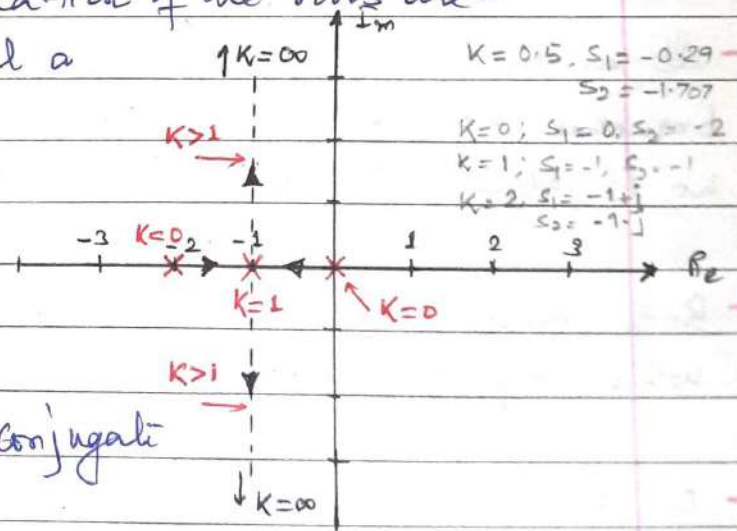 of the
Im
l a
↑K=∞
K = 0.5, S1 = -0.29
S2 = -1.707
K>1
K=0; S1=0, S2 = -2
K=1; S1=-1, S2=-1
K=2, S1= -1+j
S2= -1-j
-3 K=0 -2 -1 1 2 3 Re
K=1 K=0
K>1
conjugate
↓ K=∞